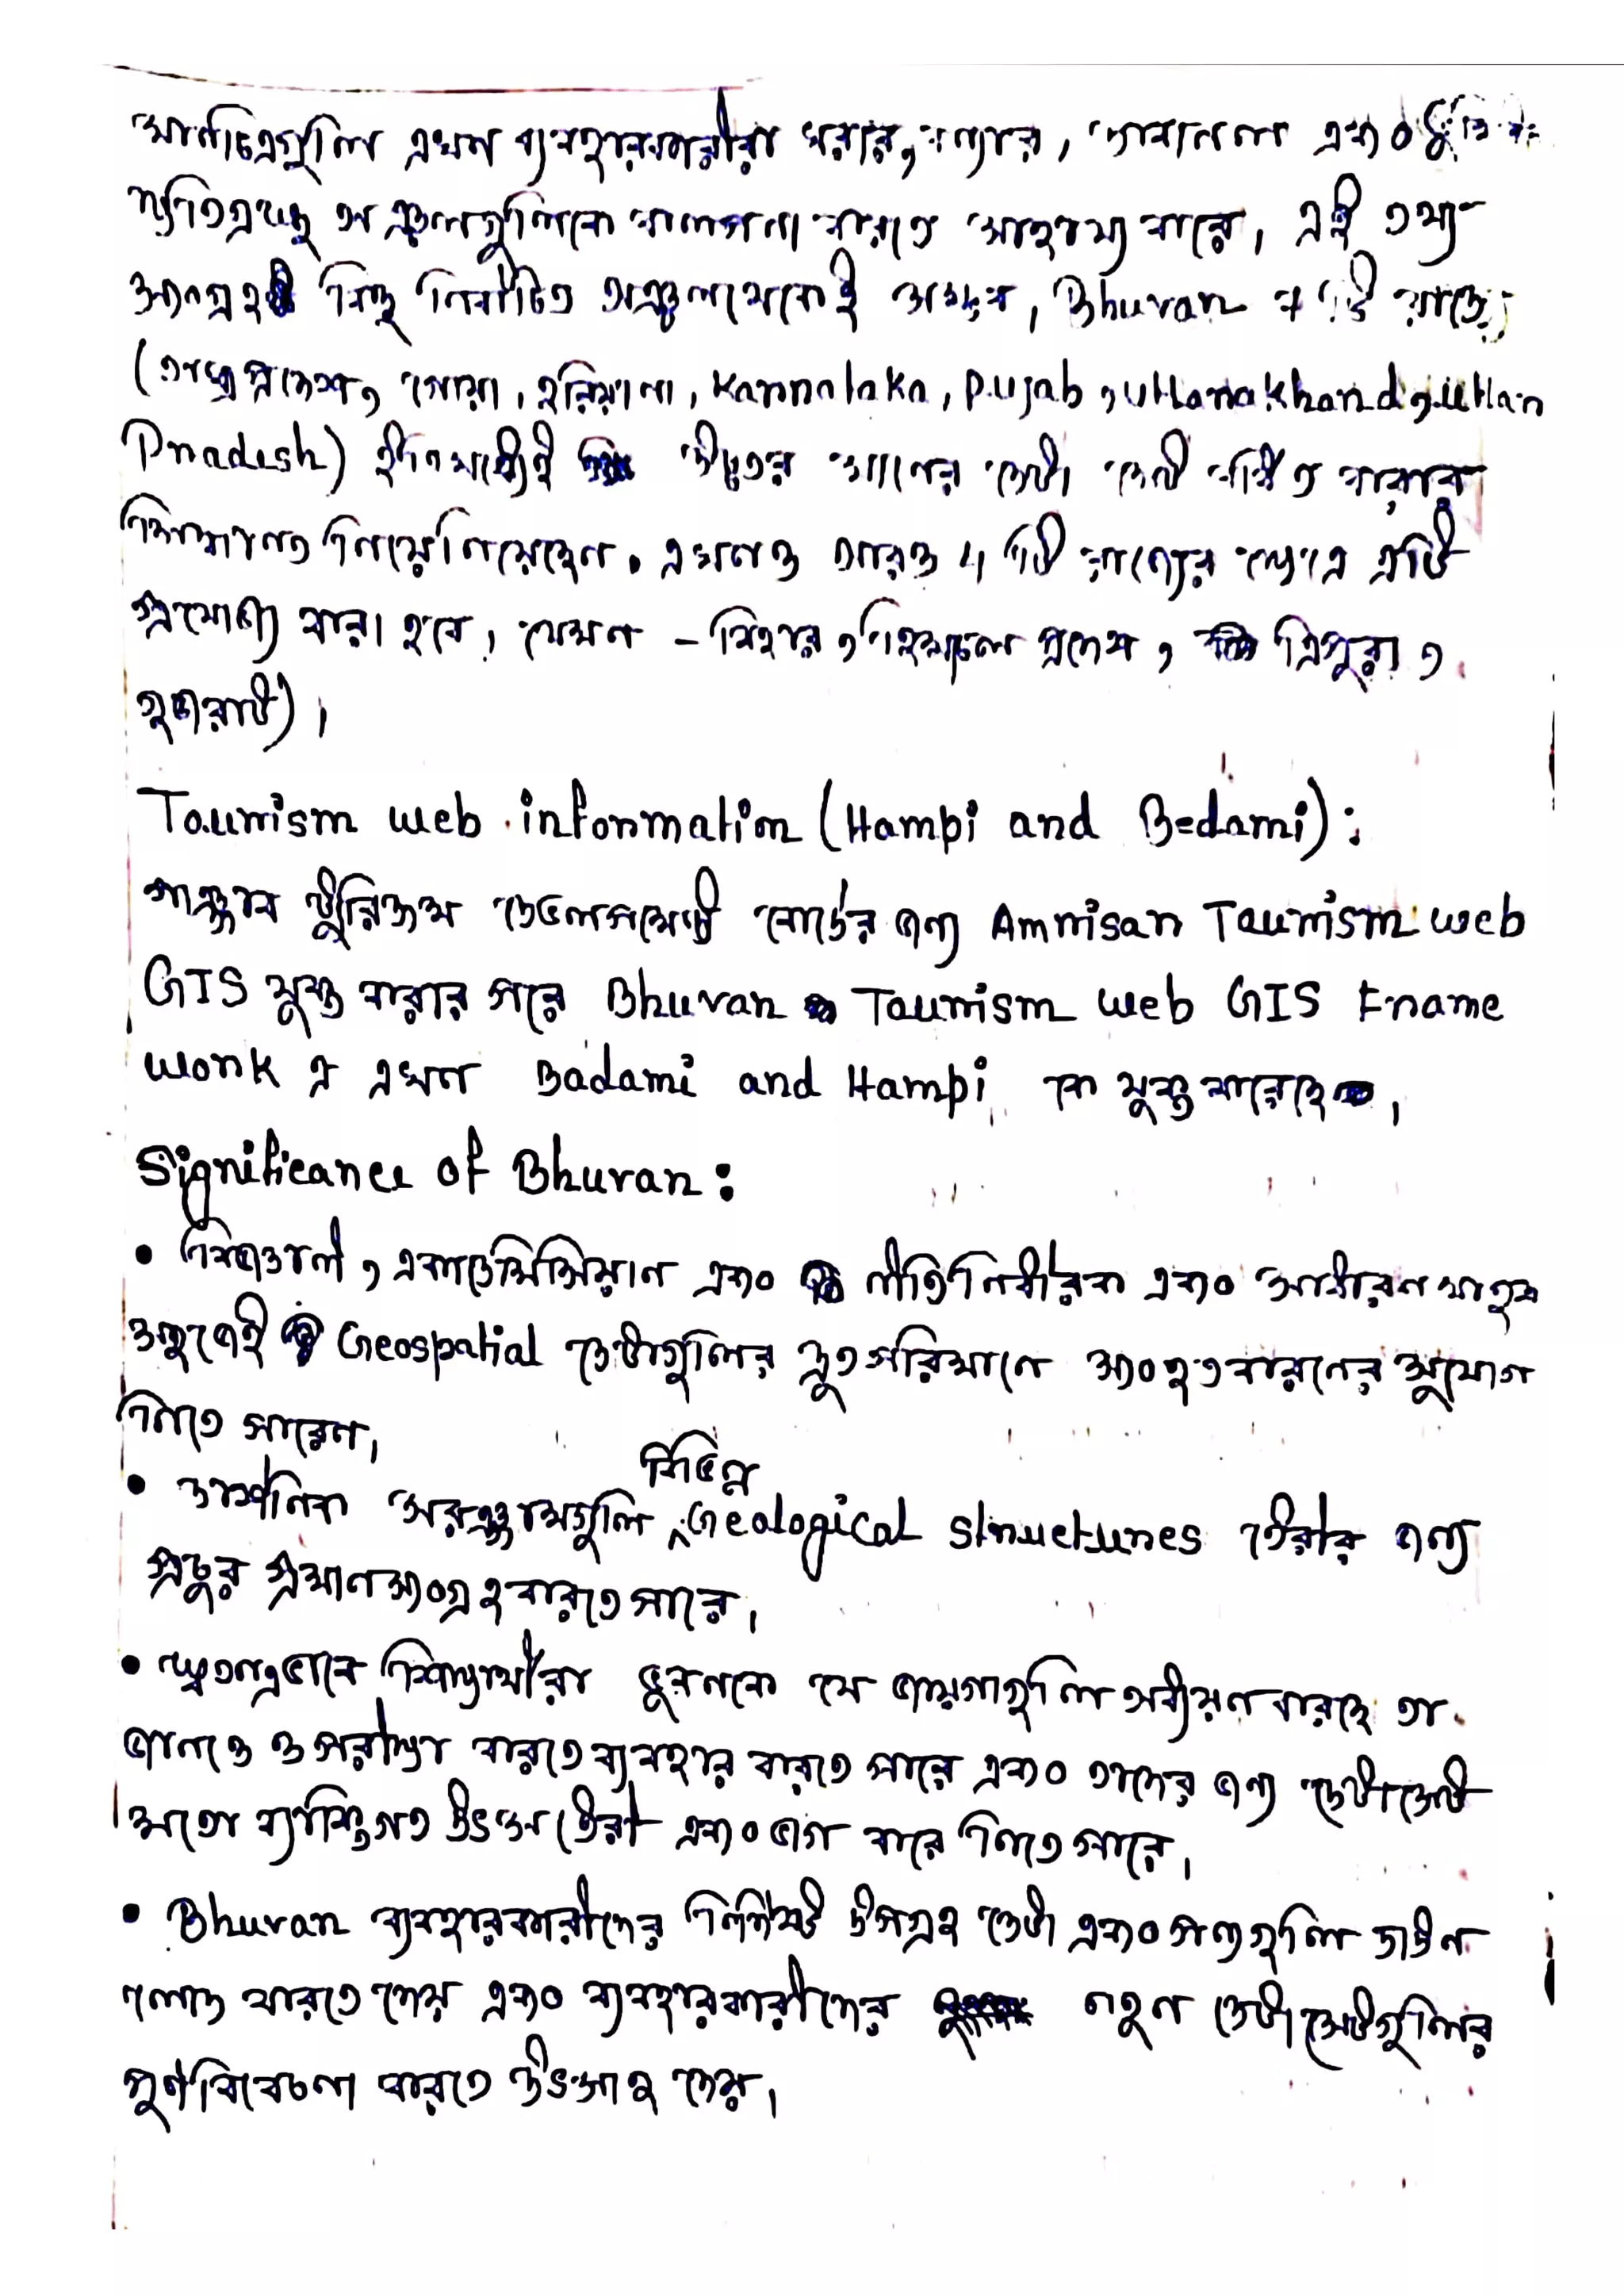 মানচিত্রগুলি এখন ব্যবহারকারীরা খরার, বন্যার, দাবানল এবং
ক্ষতিগ্রস্থ অঞ্চলগুলিকে কল্পনা করতে সাহায্য করে। এই তথ্য
সংগ্রহ কিছু নির্বাচিত অঞ্চল থেকেই সম্ভব। Bhuvan ৭ টি রাজ্যে
(অন্ধ্রপ্রদেশ, গোয়া, হরিয়ানা, Karnataka, Pujab, uttarakhand, uttar
Pradesh) ইতিমধ্যেই উচ্চতর মানের ডেটা সেট বর্ধিত করার
সিদ্ধান্ত নিয়ে নিয়েছেন। এখনও আরও 4 টি রাজ্যের ক্ষেত্রে এটি
প্রযোজ্য করা হবে, যেমন - বিহার, হিমাচল প্রদেশ, ত্রিপুরা,
গুজরাট)।
Tourism web information (Hampi and Bedami):
পাঞ্জাব ট্যুরিজম ডেভেলপমেন্ট বোর্ডের জন্য Amrisar Tourism web
GIS মুক্ত করার পরে Bhuvan Tourism web GIS Frame
work এ এখন Badami and Hampi কে মুক্ত করেছে।
Significance of Bhuvan:
• বিজ্ঞানী, একাডেমিসিয়ান এবং নীতি নির্ধারক এবং সাধারন মানুষ
সহজেই Geospatial ডেটাগুলির দ্রুত পরিমানে সংহতকরনের সুযোগ
নিতে পারেন।
• তাৎক্ষনিক সরঞ্জামগুলি বিভিন্ন Geological structures তৈরীর জন্য
প্রচুর প্রমান সংগ্রহ করতে পারে।
• স্বতন্ত্রভাবে শিক্ষার্থীরা ভুবনকে যে জায়গাগুলি অধ্যয়ন করছে তা
জানতে ও পরীক্ষা করতে ব্যবহার করতে পারে এবং তাদের জন্য ডেটাসেট
মতো ব্যক্তিগত উৎস তৈরী এবং ভাগ করে নিতে পারে।
• Bhuvan ব্যবহারকারীদের নির্দিষ্ট উপগ্রহ ডেটা এবং পন্যগুলি ডাউন
লোড করতে দেয় এবং ব্যবহারকারীদের নতুন ডেটা সেটগুলির
পুর্নবিবেচনা করতে উৎসাহ দেয়।